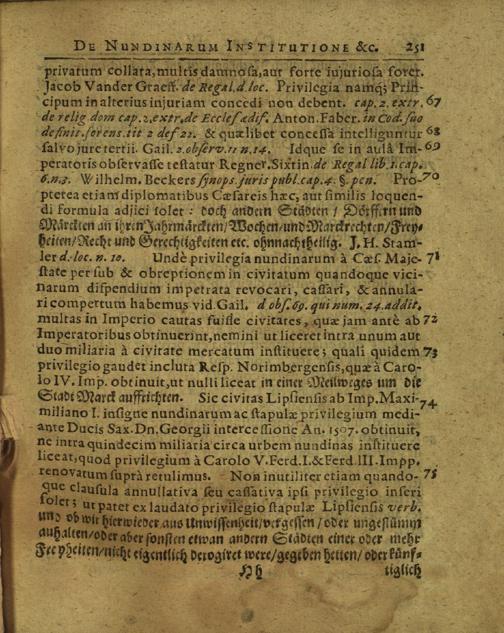 DE NUNDINARUM INSTITUTIONE &c. 251
privatum collata, multis damnosa, aut forte iujuriosa foret.
Jacob Vander Graeff. de Regal. d. loc. Privilegia namq; Prin-
cipum in alterius injuriam concedi non debent. cap. 2. extr. 67
de relig dom cap. 2. extr. de Eccles ædif. Anton. Faber. in Cod. suo
definit. forens. tit 2 def 22. & quælibet concessa intelliguntur 68
salvo jure tertii. Gail. 2. observ. 11 n. 14. Idque se in aulâ Im- 69
peratoris observasse testatur Regner. Sixtin. de Regal lib. 1. cap.
6. n. 3. Wilhelm. Beckers synops. juris publ. cap. 4. §. pen. Pro- 70
pterea etiam diplomatibus Cæsareis hæc, aut similis loquen-
di formula adjici solet: doch andern Städten / Dörffern und
Märckten an ihren Jahrmärckten / Wochen / und Marckrechten / Frey-
heiten / Recht und Gerechtigkeiten etc. ohnnachtheilig. J. H. Stam-
ler d. loc. n. 10. Undè privilegia nundinarum à Cæs. Maje- 71
state per sub & obreptionem in civitatum quandoque vici-
narum dispendium impetrata revocari, cassari, & annula-
ri compertum habemus vid. Gail. d obs. 69. qui num. 24. addit,
multas in Imperio cautas fuisse civitates, quæ jam antè ab 72
Imperatoribus obtinuerint, nemini ut liceret intra unum aut
duo miliaria à civitate mercatum instituere; quali quidem 73
privilegio gaudet incluta Resp. Norimbergensis, quæ à Caro-
lo IV. Imp. obtinuit, ut nulli liceat in einer Meilweges um die
Stadt Marck auffrichten. Sic civitas Lipsiensis ab Imp. Maxi- 74
miliano I. insigne nundinarum ac stapulæ privilegium medi-
ante Ducis Sax. Dn. Georgii intercessione An. 1507. obtinuit,
ne intra quindecim miliaria circa urbem nundinas instituere
liceat, quod privilegium à Carolo V. Ferd. I. & Ferd. III. Impp.
renovatum suprà retulimus. Non inutiliter etiam quando- 75
que clausula annullativa seu cassativa ipsi privilegio inseri
solet; ut patet ex laudato privilegio stapulæ Lipsiensis verb.
und ob wir hierwieder aus Unwissenheit / vergessen / oder ungestümm
anhalten / oder aber sonsten etwan andern Städten einer oder mehr
Freyheiten / nicht eigentlich derogiret were / gegeben hetten / oder künf-
Hh tiglich